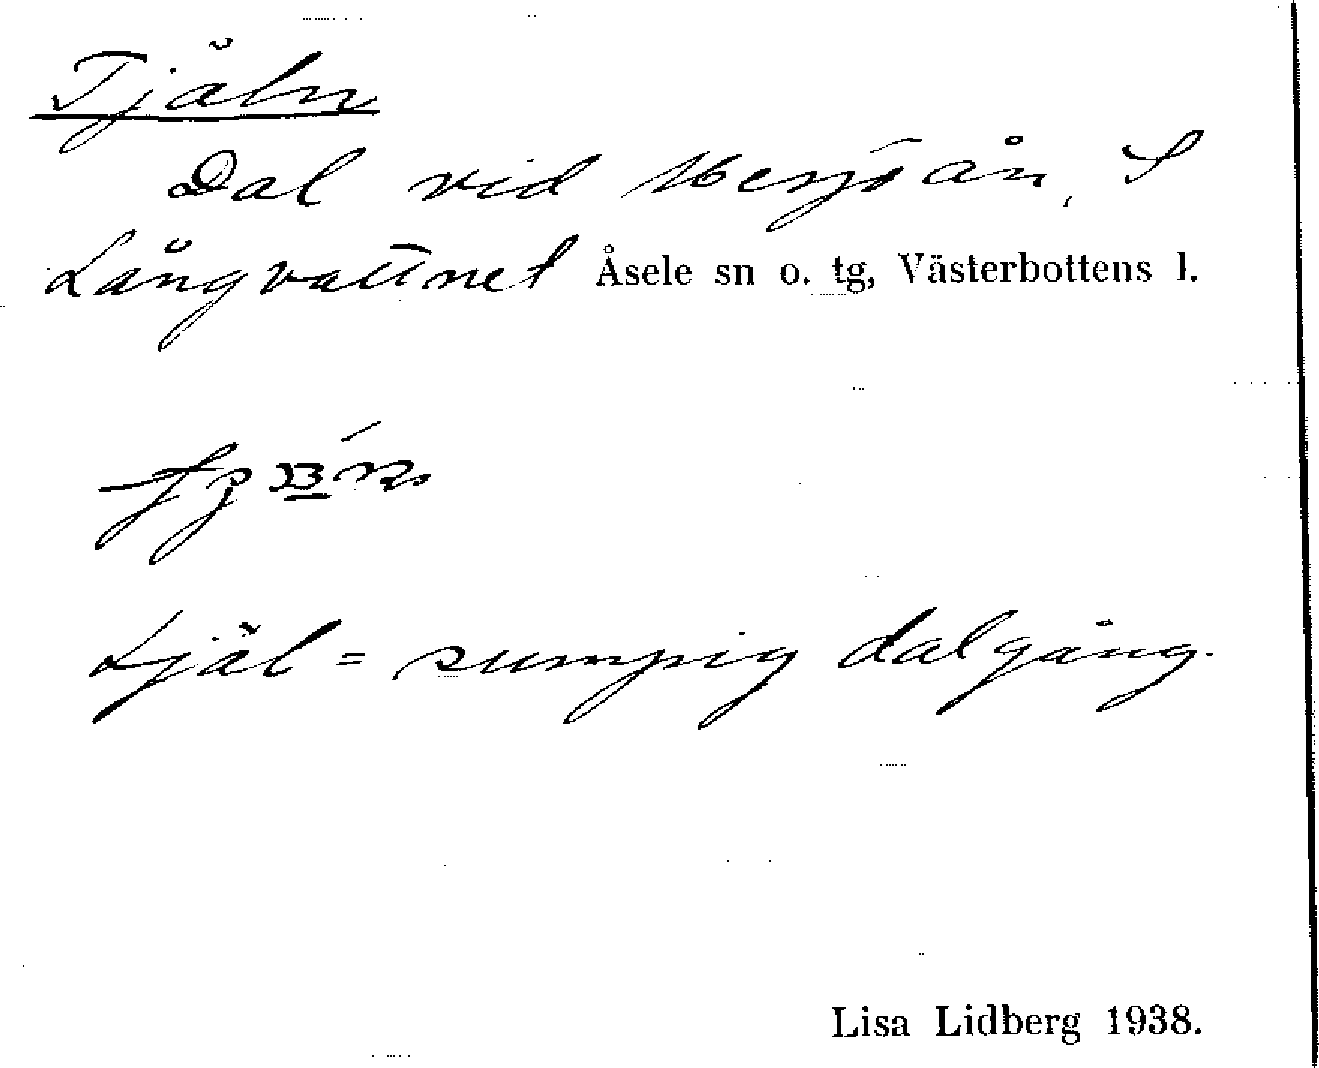 Tjäln
Dal vid           ån, S
Långvattnet Åsele sn o. tg, Västerbottens l.
tjäl = sumpig dalgång.
Lisa Lidberg 1938.